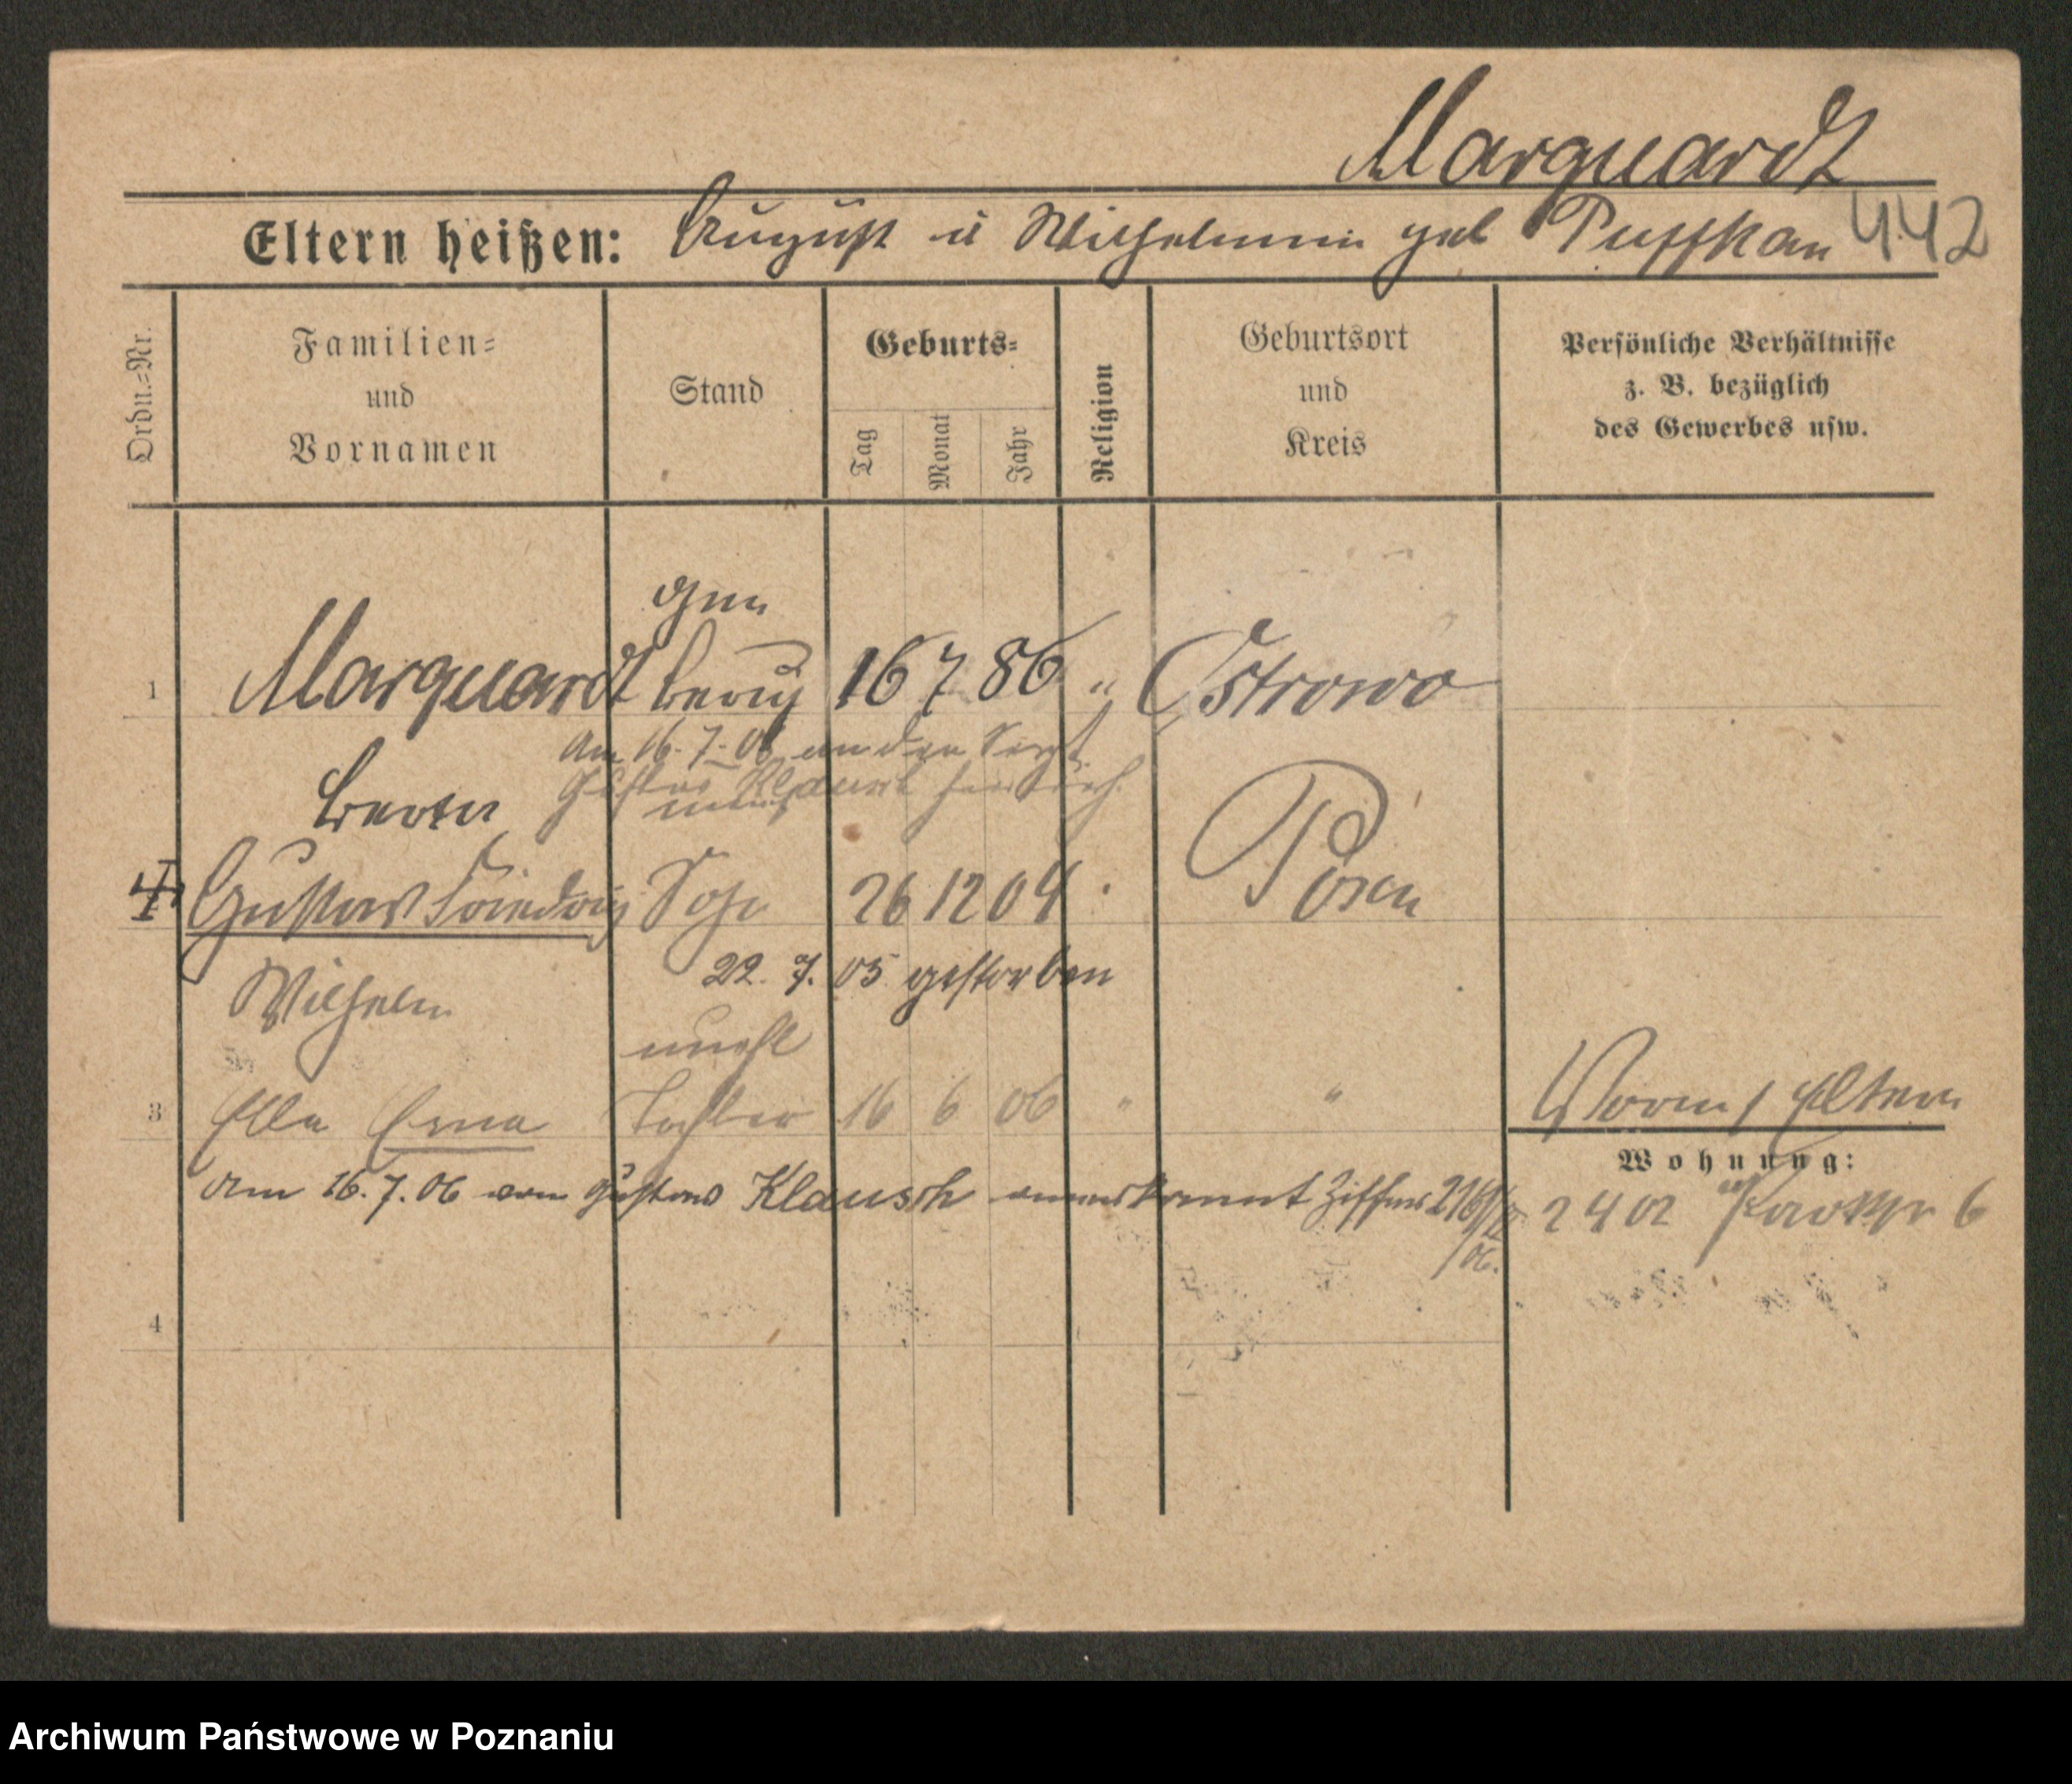 Marquardt
Eltern heißen: August u Wilhelmine geb Puffkan 442
Ordn.=Nr. Familien= und Vornamen Stand Geburts= Tag Monat Jahr Religion Geburtsort und Kreis Persönliche Verhältnisse z. B. bezüglich des Gewerbes usw.
1 Marquardt 16 7 86 " Ostrowo
Am 16. 7. 06 an den
Gustav
Berta
Gustav Friedrich Sohn 26 12 04 Posen
22. 7. 05 gestorben
Wilhelm
unehl
3 Ella Erna Tochter 16 6 06 " "
Eltern
Wohnung:
am 16. 7. 06 von Gustav Klausch anerkannt Ziffer
2402 6
4
Archiwum Państwowe w Poznaniu